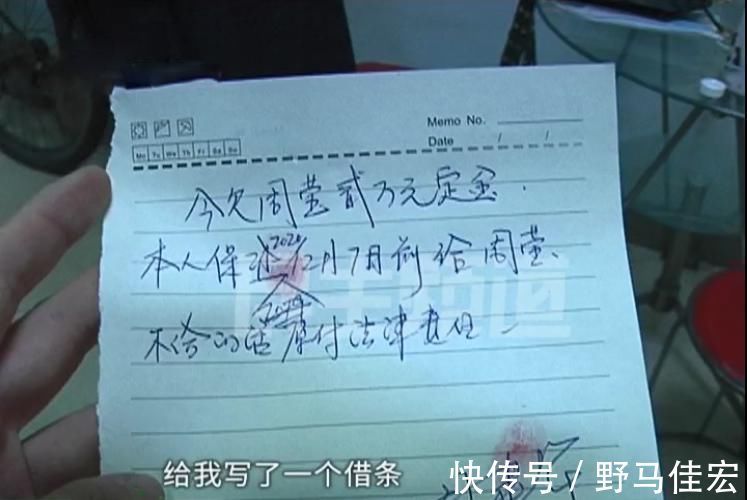 Memo No.
Date / /
Mo Tu We Th Fr Sa Su
今欠周莹贰万元定金.
本人保证2020 12月7月前给周莹、
不给的话原付法津责任
给我写了一个借条
快传号 / 野马佳宏